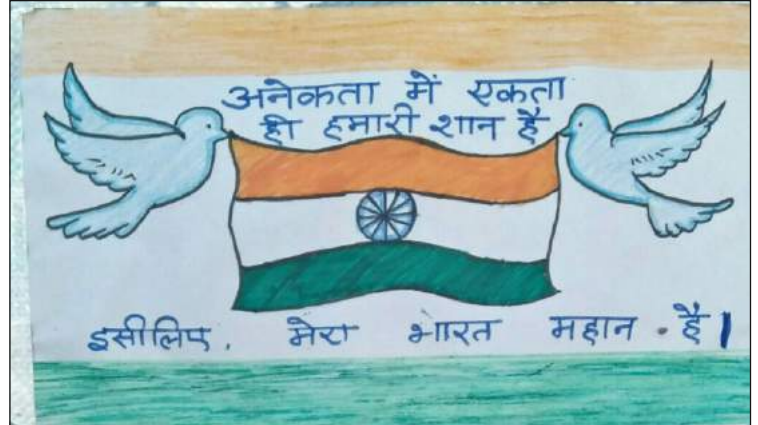 अनेकता में एकता
ही हमारी शान हैं
इसीलिए. मेरा भारत महान . हैं।